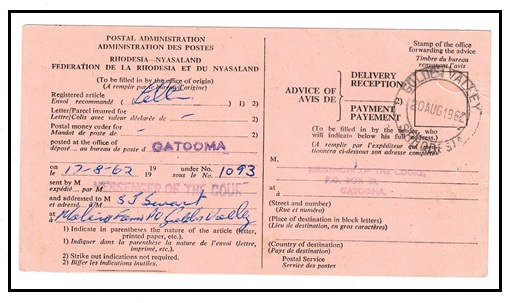 POSTAL ADMINISTRATION
ADMINISTRATION DES POSTES
RHODESIA—NYASALAND
FEDERATION DE LA RHODESIA ET DU NYASALAND
(To be filled in by the office of origin)
(A remplir par le bureau d'origine)
Registered article
Envoi recommandé ( Letter ) 1) 2)
Letter/Parcel insured for
Lettre/Colis avec valeur déclarée de - 2)
Postal money order for
Mandat de poste de - 2)
posted at the office of
déposé au bureau de poste à GATOOMA
on 17-8-62 19 under No. 1093
le 19 sous le No.
sent by M MESSENGER OF THE COURT
expédié par M
and addressed to M S J
et adressé à M
at Farm PO Golden Valley
à
1) Indicate in parentheses the nature of the article (letter, printed paper, etc.)
1) Indiquer dans la parenthèse la nature de l'envoi (lettre, imprimé, etc.)
2) Strike out indications not required.
2) Biffer les indications inutiles.
Stamp of the office forwarding the advice
Timbre du bureau renvoyant l'avis
GOLDEN VALLEY
20 AUG 1962
S. RHODESIA
ADVICE OF
AVIS DE
DELIVERY
RECEPTION
2)
PAYMENT
PAYEMENT
(To be filled in by the sender, who will indicate below his full address)
(A remplir par l'expéditeur qui mentionnera ci-dessous son adresse complète)
MESSENGER OF THE COURT,
P.O. BOX
GATOOMA.
(Street and number)
(Rue et numéro)
(Place of destination in block letters)
(Lieu de destination, en gros caractères)
(Country of destination)
(Pays de destination)
Postal Service
Service des postes